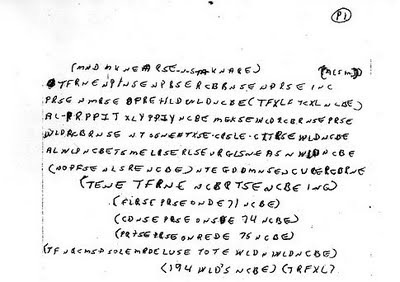 P1
(MND MKNEARSE-N-S-M-KNARE) (ACSM)
TFRNENPINSENPBSERCBBNSENPRSEINC
PRSENMRSEOPREHLDWLDNCBE(TFXLFTCXLNCBE)
AL-PRPPIT XLYPPIYNCBE MGKSEWLDRCBRNSEPRSE
WLDRCBRNSE NTSSNENTXSE-CRSLE-CITRSEWLDNCBE
ALWLDNCBETSMELRSERLSEURGLSNEASNWLDNCBE
(NOPFSENLSRENCBE)NTEGDDMNSENCURERCBRNE
(TENE TFRNE NCBRTSENCBE ING)
(FLRSEPRSEONDE71NCBE)
(CDNSEPRSEONSDE74NCBE)
(PRTSEPRSEONREDE75NCBE)
(TFNQCMSPSOLEMRDELUSE TOTE WLDN WLDNCBE)
(194 WLD'S NCBE) (TRFXL)